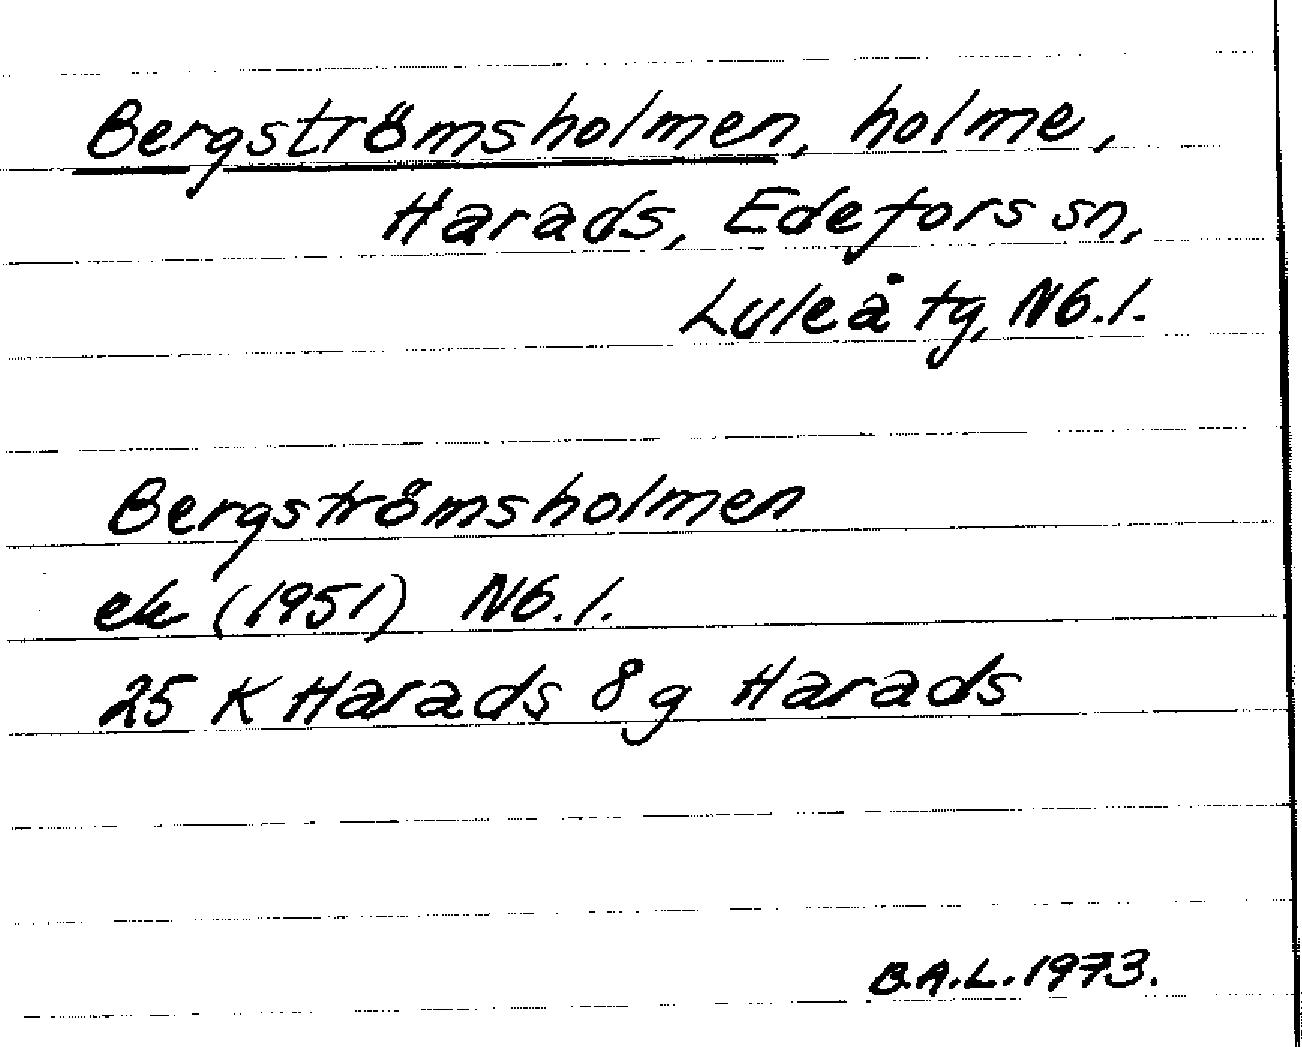 Bergströmsholmen, holme,
Harads, Edefors sn,
Luleå tg, Nb. l.
Bergströmsholmen
ek (1951) Nb. l.
25 K Harads 8 g Harads
B.A.L. 1973.